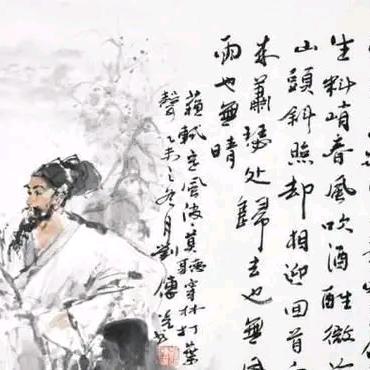 生料峭春風吹酒醒微
山頭斜照却相迎回首
来蕭瑟处歸去也無
雨也無晴
蘇軾定風波·莫聽穿林打葉
聲乙未之冬月劉傳